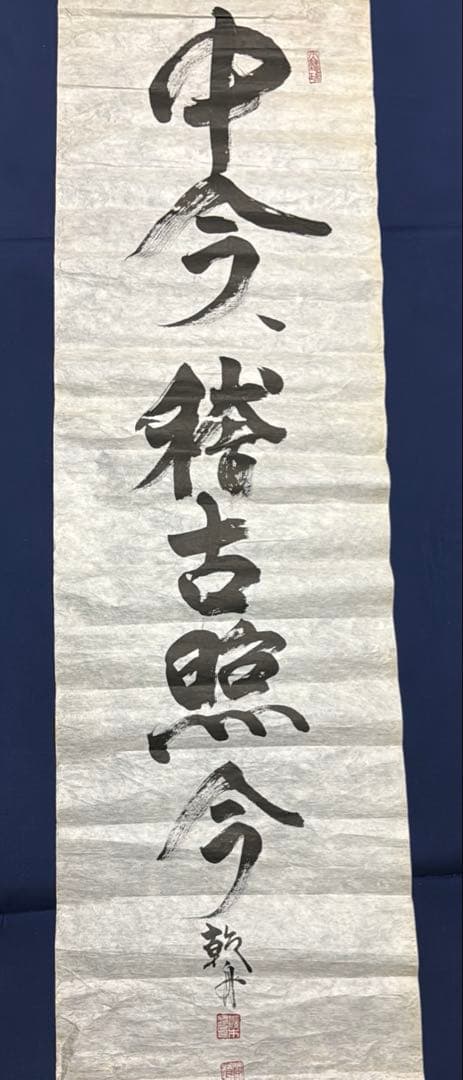 中今、稽古照今
乾舟